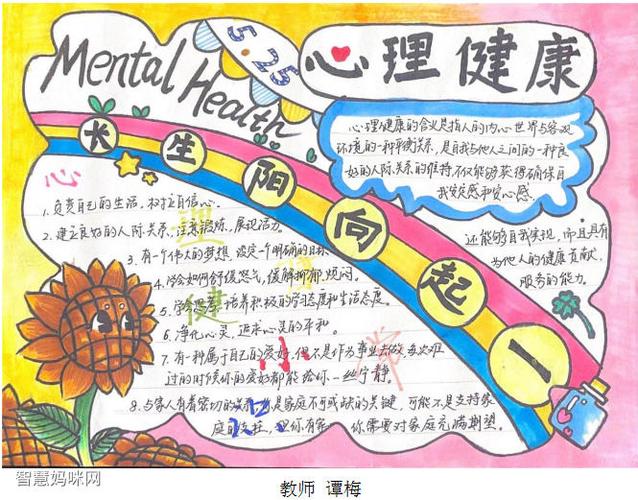 Mental Health
5.25
心理健康
心理健康的含义是指人的内心世界与客观
环境的一种平衡关系，是自我与他人之间的一种良
好的人际关系的维持，不仅能够获得确保自
我安定感和安心感，
还能够自我实现，而且具有
为他人的健康贡献、
服务的能力。
长生阳向起一
心理健康
小知识
1.负责自己的生活，树立自信心。
2.建立良好的人际关系，注意锻炼，展现活力。
3.有一个伟大的梦想，设定一个明确的目标
4.学会如何舒缓怒气，缓解抑郁烦闷。
5.学会思考，培养积极的学习态度和生活态度。
6.净化心灵，追求心灵的平和。
7.有一种属于自己的爱好，但不是作为事业去做，每次难
过的时候你的爱好都能给你一丝宁静。
8.与家人有着密切的关系，是家庭不可或缺的关键，可能不是支持家
庭的支柱，但你有家 你需要对家庭充满期望。
智慧妈咪网
教师 谭梅